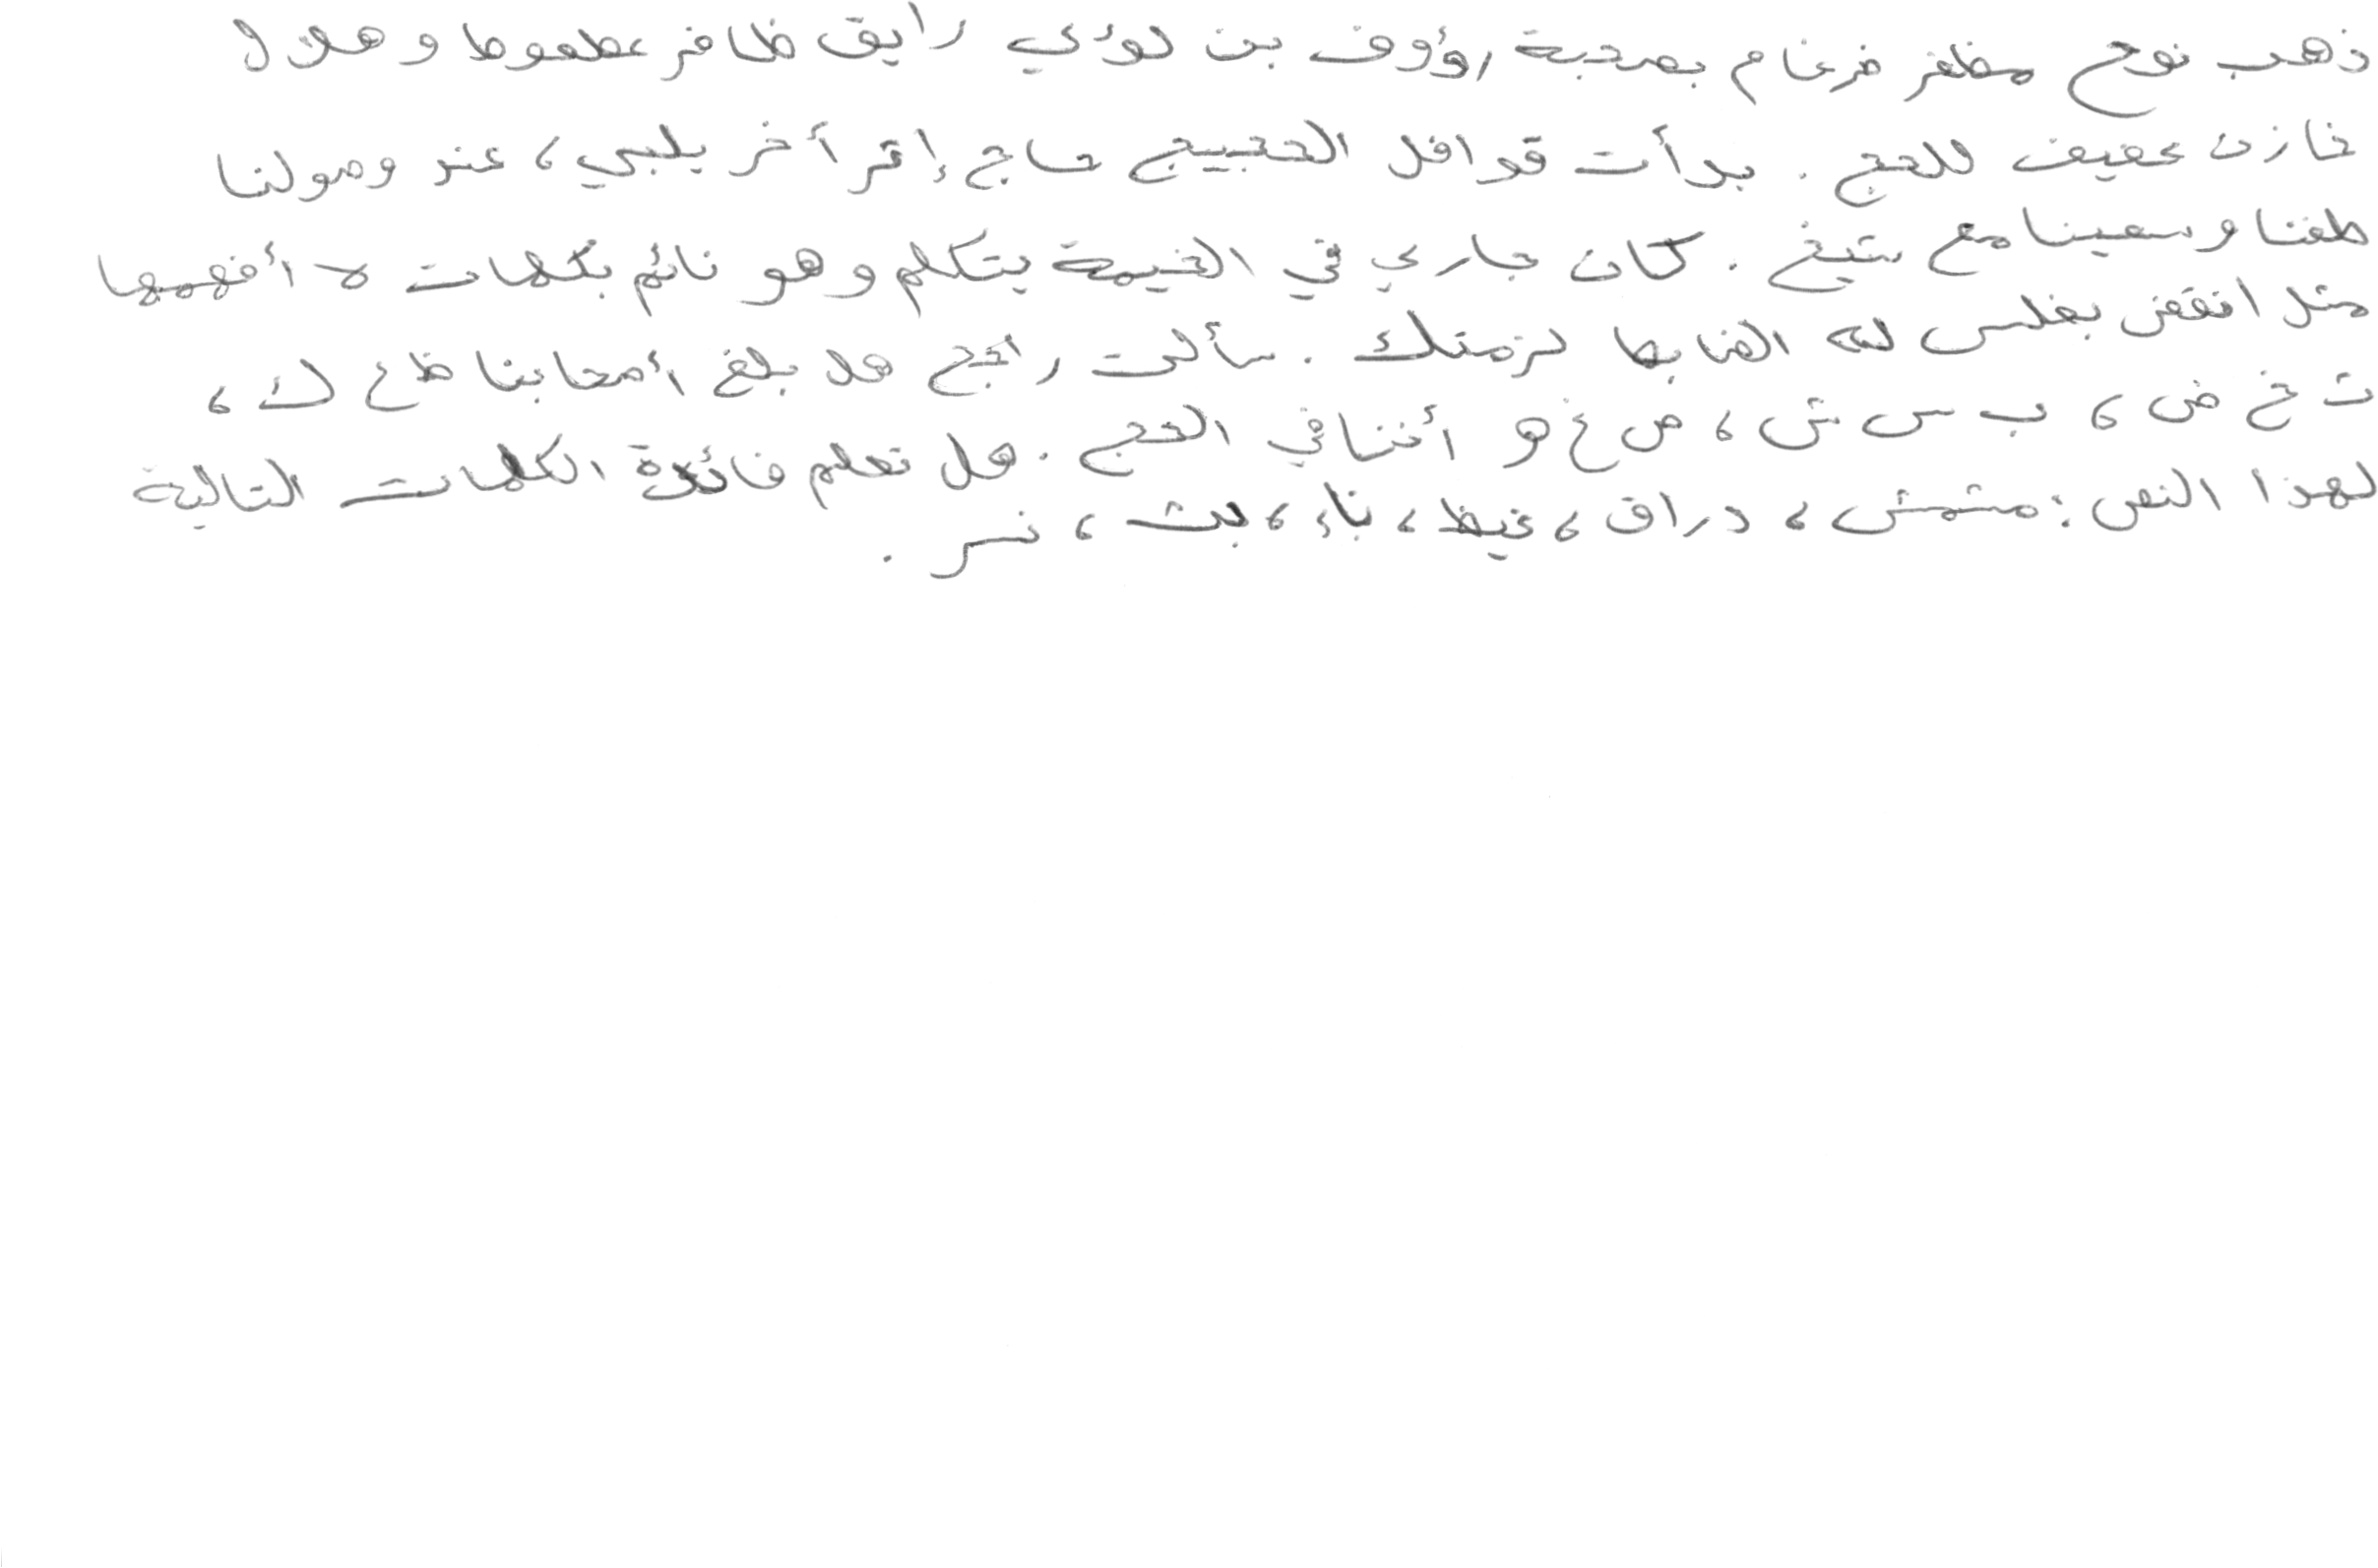 ذهب نوح مظفر ضرغام بصحبة رؤوف بن لؤي رايق ظافر عطعوط و هلال
خازن عفيف للحج. بدأت قوافل الحجيج حاج إثر أخر يلبي، عند وصولنا
طفنا وسعينا مع شيخ. كان جاري في الخيمة يتكلم وهو نائم بكلمات لا أفهمها
مثل انفض بغلس لله الضابط لزمتك. سألت راجح هلا بلغ أصحابنا ظ ء ك ذ،
ث خ ض، ب س ش، ص غ و أثنا في الحج. هل تعلم فائدة الكلمات التالية
لهذا النص: مشمش، دراق، غيظ، بإ، بث، نسر.